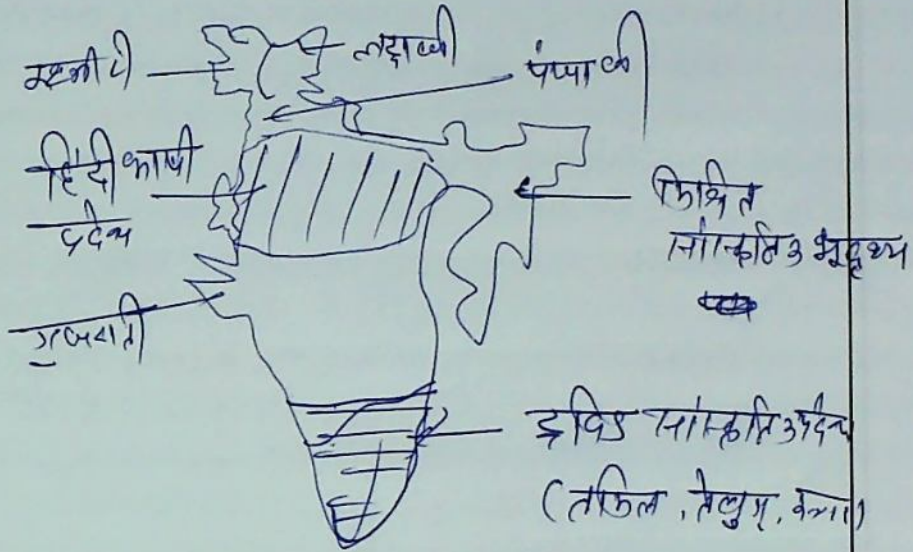 कश्मीरी
लद्दाखी
पंजाबी
हिंदी भाषी
प्रदेश
गुजराती
मिश्रित
सांस्कृतिक भूदृश्य
द्रविड सांस्कृतिक प्रदेश
(तमिल, तेलुगु, कन्नड)